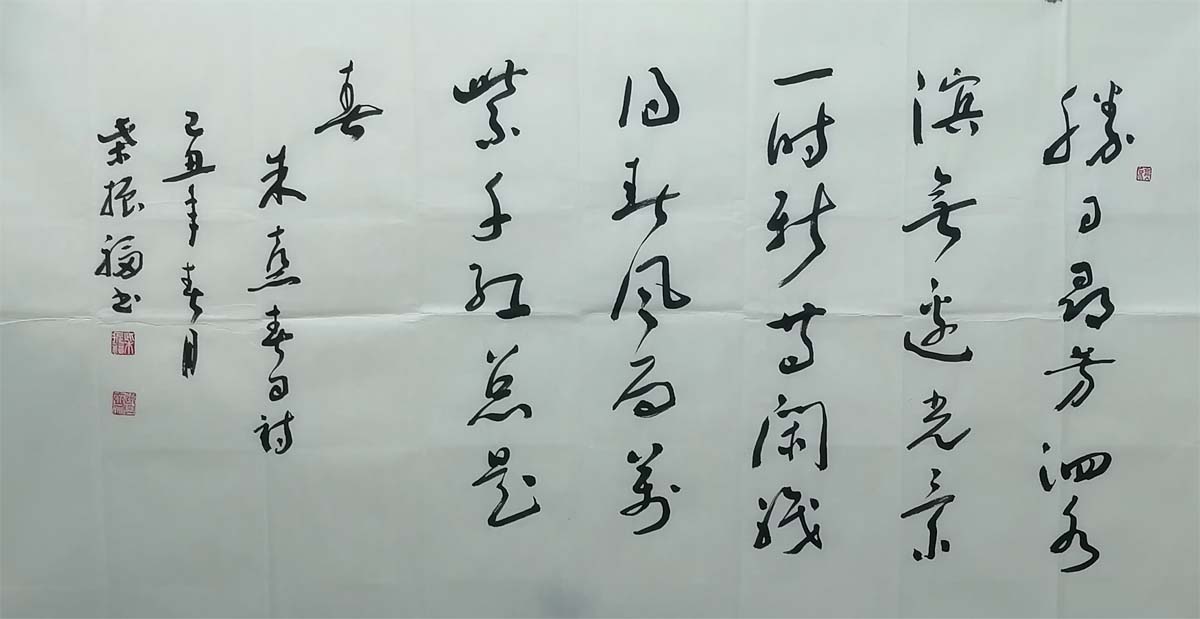 勝日尋芳泗水
濱無邊光景
一時新等閑識
得春風面萬
紫千紅总是
春
朱熹春日詩
己丑年春月
柴振福书